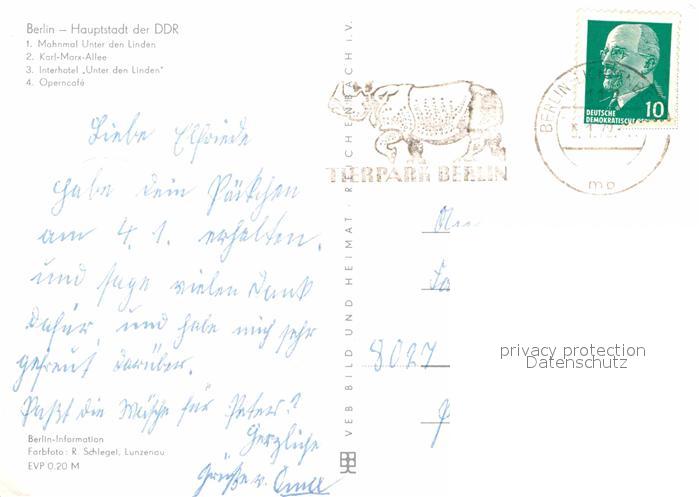 Berlin – Hauptstadt der DDR
1. Mahnmal Unter den Linden
2. Karl-Marx-Allee
3. Interhotel „Unter den Linden"
4. Operncafé
Liebe Elfriede
habe dein Päckchen
am 4. 1. erhalten.
und sage vielen Dank
dafür, und habe mich sehr
gefreut darüber.
Paßt die Wäsche für Peter?
Herzliche
Grüße v.
Berlin-Information
Farbfoto: R. Schlegel, Lunzenau
EVP 0.20 M
VEB BILD UND HEIMAT · REICHENBACH I. V.
TIERPARK BERLIN
BERLIN
mp
DEUTSCHE
DEMOKRATISCHE
10
8027
privacy protection
Datenschutz